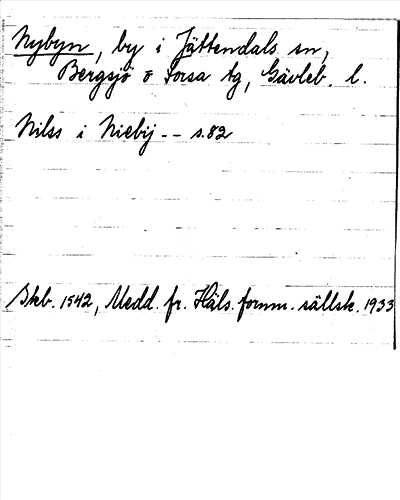 Nybyn, by i Jättendals sn,
Bergsjö o Forsa tg, Gävleb. l.
Nilss i Niebij -- s. 82
Skb. 1542, Medd. fr. Häls. fornm. sällsk. 1933